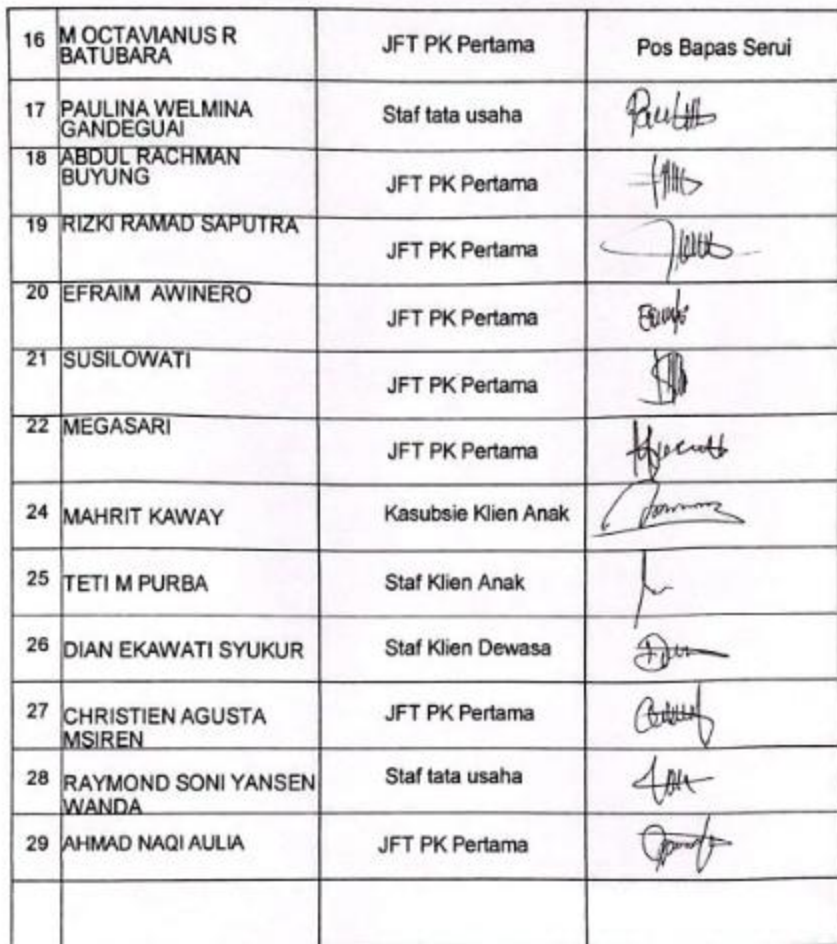 16 M OCTAVIANUS R BATUBARA JFT PK Pertama Pos Bapas Serui
17 PAULINA WELMINA GANDEGUAI Staf tata usaha
18 ABDUL RACHMAN BUYUNG JFT PK Pertama
19 RIZKI RAMAD SAPUTRA JFT PK Pertama
20 EFRAIM AWINERO JFT PK Pertama
21 SUSILOWATI JFT PK Pertama
22 MEGASARI JFT PK Pertama
24 MAHRIT KAWAY Kasubsie Klien Anak
25 TETI M PURBA Staf Klien Anak
26 DIAN EKAWATI SYUKUR Staf Klien Dewasa
27 CHRISTIEN AGUSTA MSIREN JFT PK Pertama
28 RAYMOND SONI YANSEN WANDA Staf tata usaha
29 AHMAD NAQI AULIA JFT PK Pertama